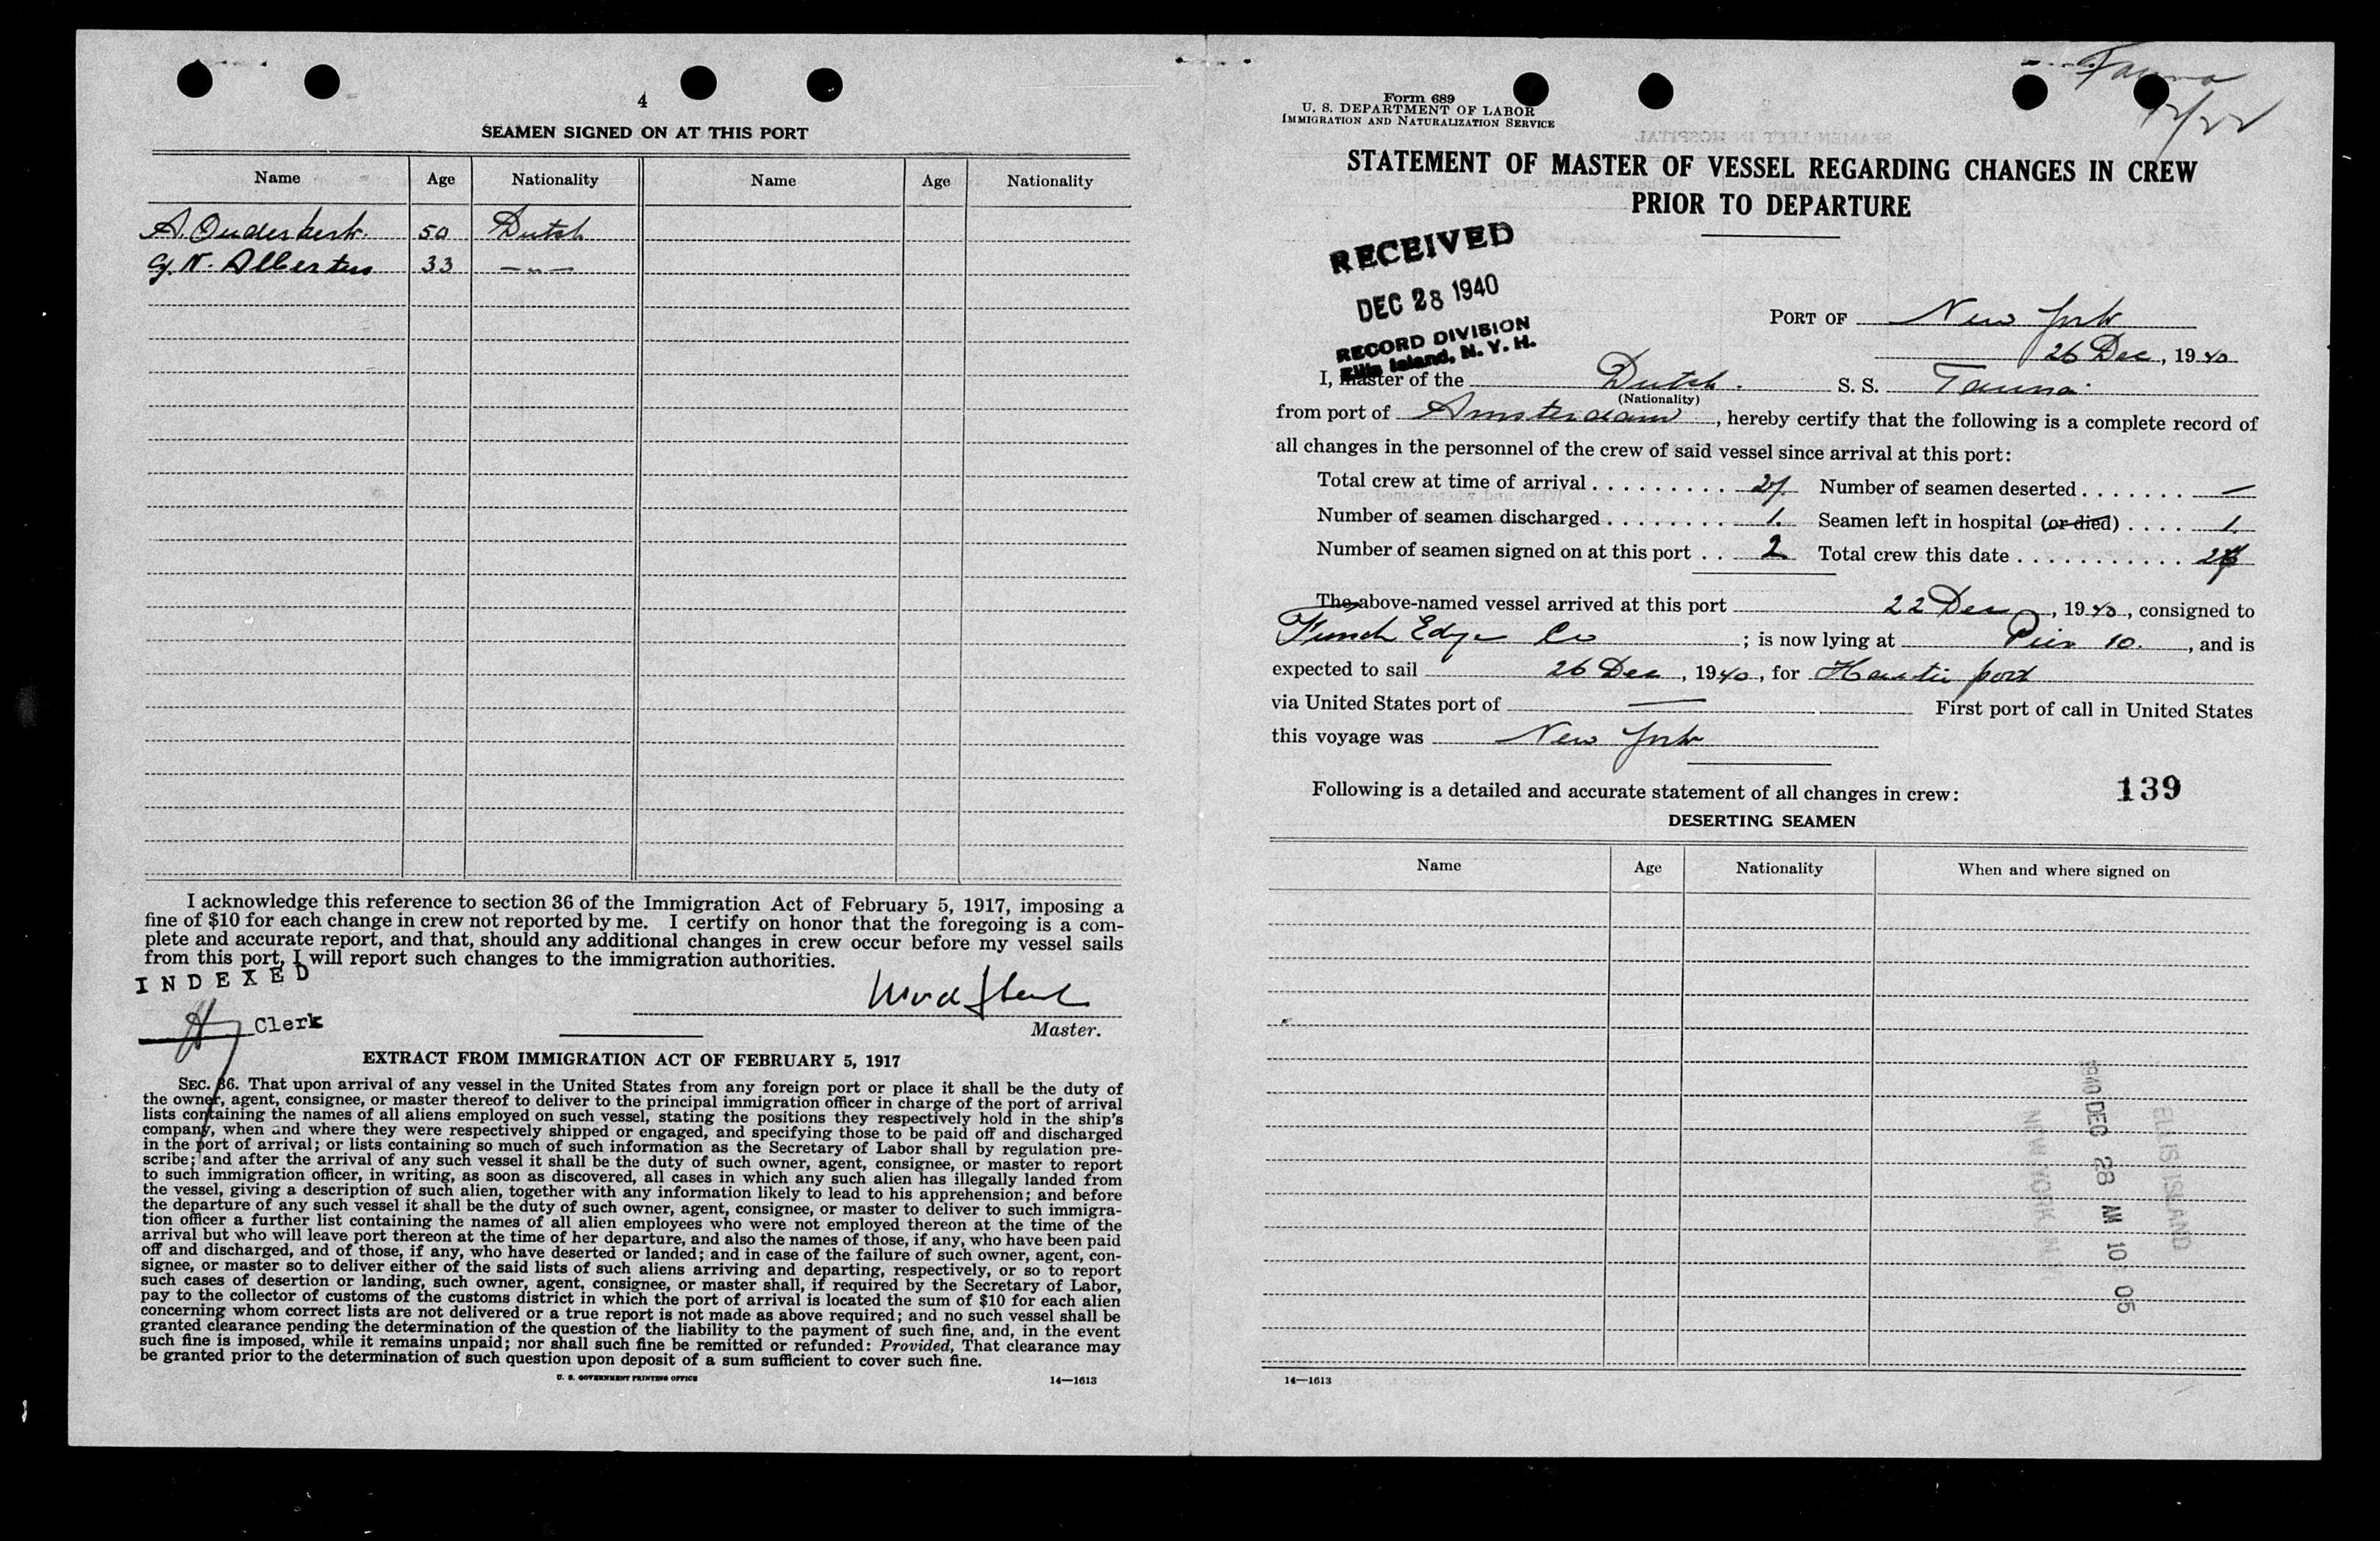 4
SEAMEN SIGNED ON AT THIS PORT
Name Age Nationality Name Age Nationality
A. Ouderkerk. 50 Dutch
G. N. Albertus 33 —„—
I acknowledge this reference to section 36 of the Immigration Act of February 5, 1917, imposing a
fine of $10 for each change in crew not reported by me. I certify on honor that the foregoing is a com-
plete and accurate report, and that, should any additional changes in crew occur before my vessel sails
from this port, I will report such changes to the immigration authorities.
INDEXED
Clerk
Master.
EXTRACT FROM IMMIGRATION ACT OF FEBRUARY 5, 1917
SEC. 36. That upon arrival of any vessel in the United States from any foreign port or place it shall be the duty of
the owner, agent, consignee, or master thereof to deliver to the principal immigration officer in charge of the port of arrival
lists containing the names of all aliens employed on such vessel, stating the positions they respectively hold in the ship's
company, when and where they were respectively shipped or engaged, and specifying those to be paid off and discharged
in the port of arrival; or lists containing so much of such information as the Secretary of Labor shall by regulation pre-
scribe; and after the arrival of any such vessel it shall be the duty of such owner, agent, consignee, or master to report
to such immigration officer, in writing, as soon as discovered, all cases in which any such alien has illegally landed from
the vessel, giving a description of such alien, together with any information likely to lead to his apprehension; and before
the departure of any such vessel it shall be the duty of such owner, agent, consignee, or master to deliver to such immigra-
tion officer a further list containing the names of all alien employees who were not employed thereon at the time of the
arrival but who will leave port thereon at the time of her departure, and also the names of those, if any, who have been paid
off and discharged, and of those, if any, who have deserted or landed; and in case of the failure of such owner, agent, con-
signee, or master so to deliver either of the said lists of such aliens arriving and departing, respectively, or so to report
such cases of desertion or landing, such owner, agent, consignee, or master shall, if required by the Secretary of Labor,
pay to the collector of customs of the customs district in which the port of arrival is located the sum of $10 for each alien
concerning whom correct lists are not delivered or a true report is not made as above required; and no such vessel shall be
granted clearance pending the determination of the question of the liability to the payment of such fine, and, in the event
such fine is imposed, while it remains unpaid; nor shall such fine be remitted or refunded: Provided, That clearance may
be granted prior to the determination of such question upon deposit of a sum sufficient to cover such fine.
U. S. GOVERNMENT PRINTING OFFICE 14—1613
Fauna
12/22
Form 689
U. S. DEPARTMENT OF LABOR
IMMIGRATION AND NATURALIZATION SERVICE
STATEMENT OF MASTER OF VESSEL REGARDING CHANGES IN CREW
PRIOR TO DEPARTURE
RECEIVED
DEC 28 1940
RECORD DIVISION
Ellis Island, N. Y. H.
PORT OF New York
26 Dec, 1940
I, master of the Dutch. S. S. Fauna.
(Nationality)
from port of Amsterdam, hereby certify that the following is a complete record of
all changes in the personnel of the crew of said vessel since arrival at this port:
Total crew at time of arrival . . . . . . . . . 27. Number of seamen deserted . . . . . . . —
Number of seamen discharged . . . . . . . . 1. Seamen left in hospital (or died) . . . . 1.
Number of seamen signed on at this port . . 2 Total crew this date . . . . . . . . . . . 27
The above-named vessel arrived at this port 22 Dec, 1940, consigned to
Funch Edye Co; is now lying at Pier 10., and is
expected to sail 26 Dec, 1940, for Haitie port
via United States port of — First port of call in United States
this voyage was New York
Following is a detailed and accurate statement of all changes in crew: 139
DESERTING SEAMEN
Name Age Nationality When and where signed on
ELLIS ISLAND
1940 DEC 28 AM 10 05
NEW YORK N.Y.
14—1613